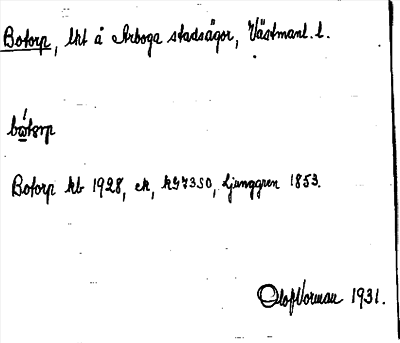 Botorp, lht å Arboga stadsägor, Västmanl. l.
Botorp kb 1928, ek, Ljunggren 1853.
Olof Vorman 1931.